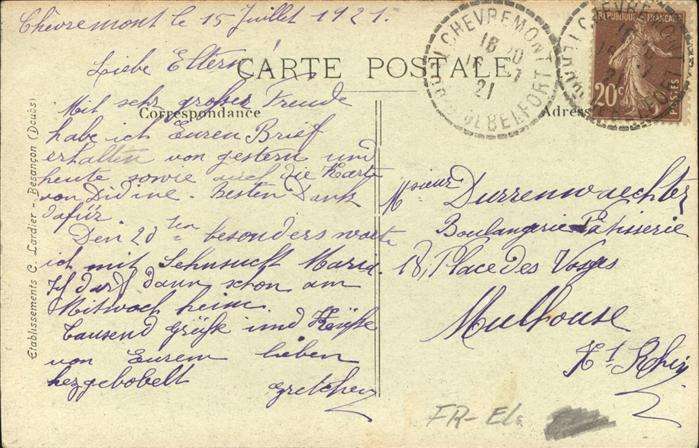 Chèvremont le 15 Juillet 1921.
Liebe Eltern!
CARTE POSTALE
Correspondance
Mit sehr großer Freude
habe ich Euren Brief
erhalten von gestern und
heute sowie auch die Karte
von Didine. Besten Dank
dafür.
Den 20ten besonders warte
ich mit Sehnsucht Maria.
Ich darf dann schon am
Mittwoch heim.
Tausend Grüße und Küsse
von Eurem lieben
Gretchen
Établissements C. Lardier - Besançon (Doubs)
CHEVREMONT
18 30
15 -7
21
BELFORT
RÉPUBLIQUE FRANÇAISE
20c
POSTES
Adresse
Monsieur Durrenwaechter
Boulangerie Pâtisserie
18, Place des Vosges
Mulhouse
Ht. Rhin
FR-Els